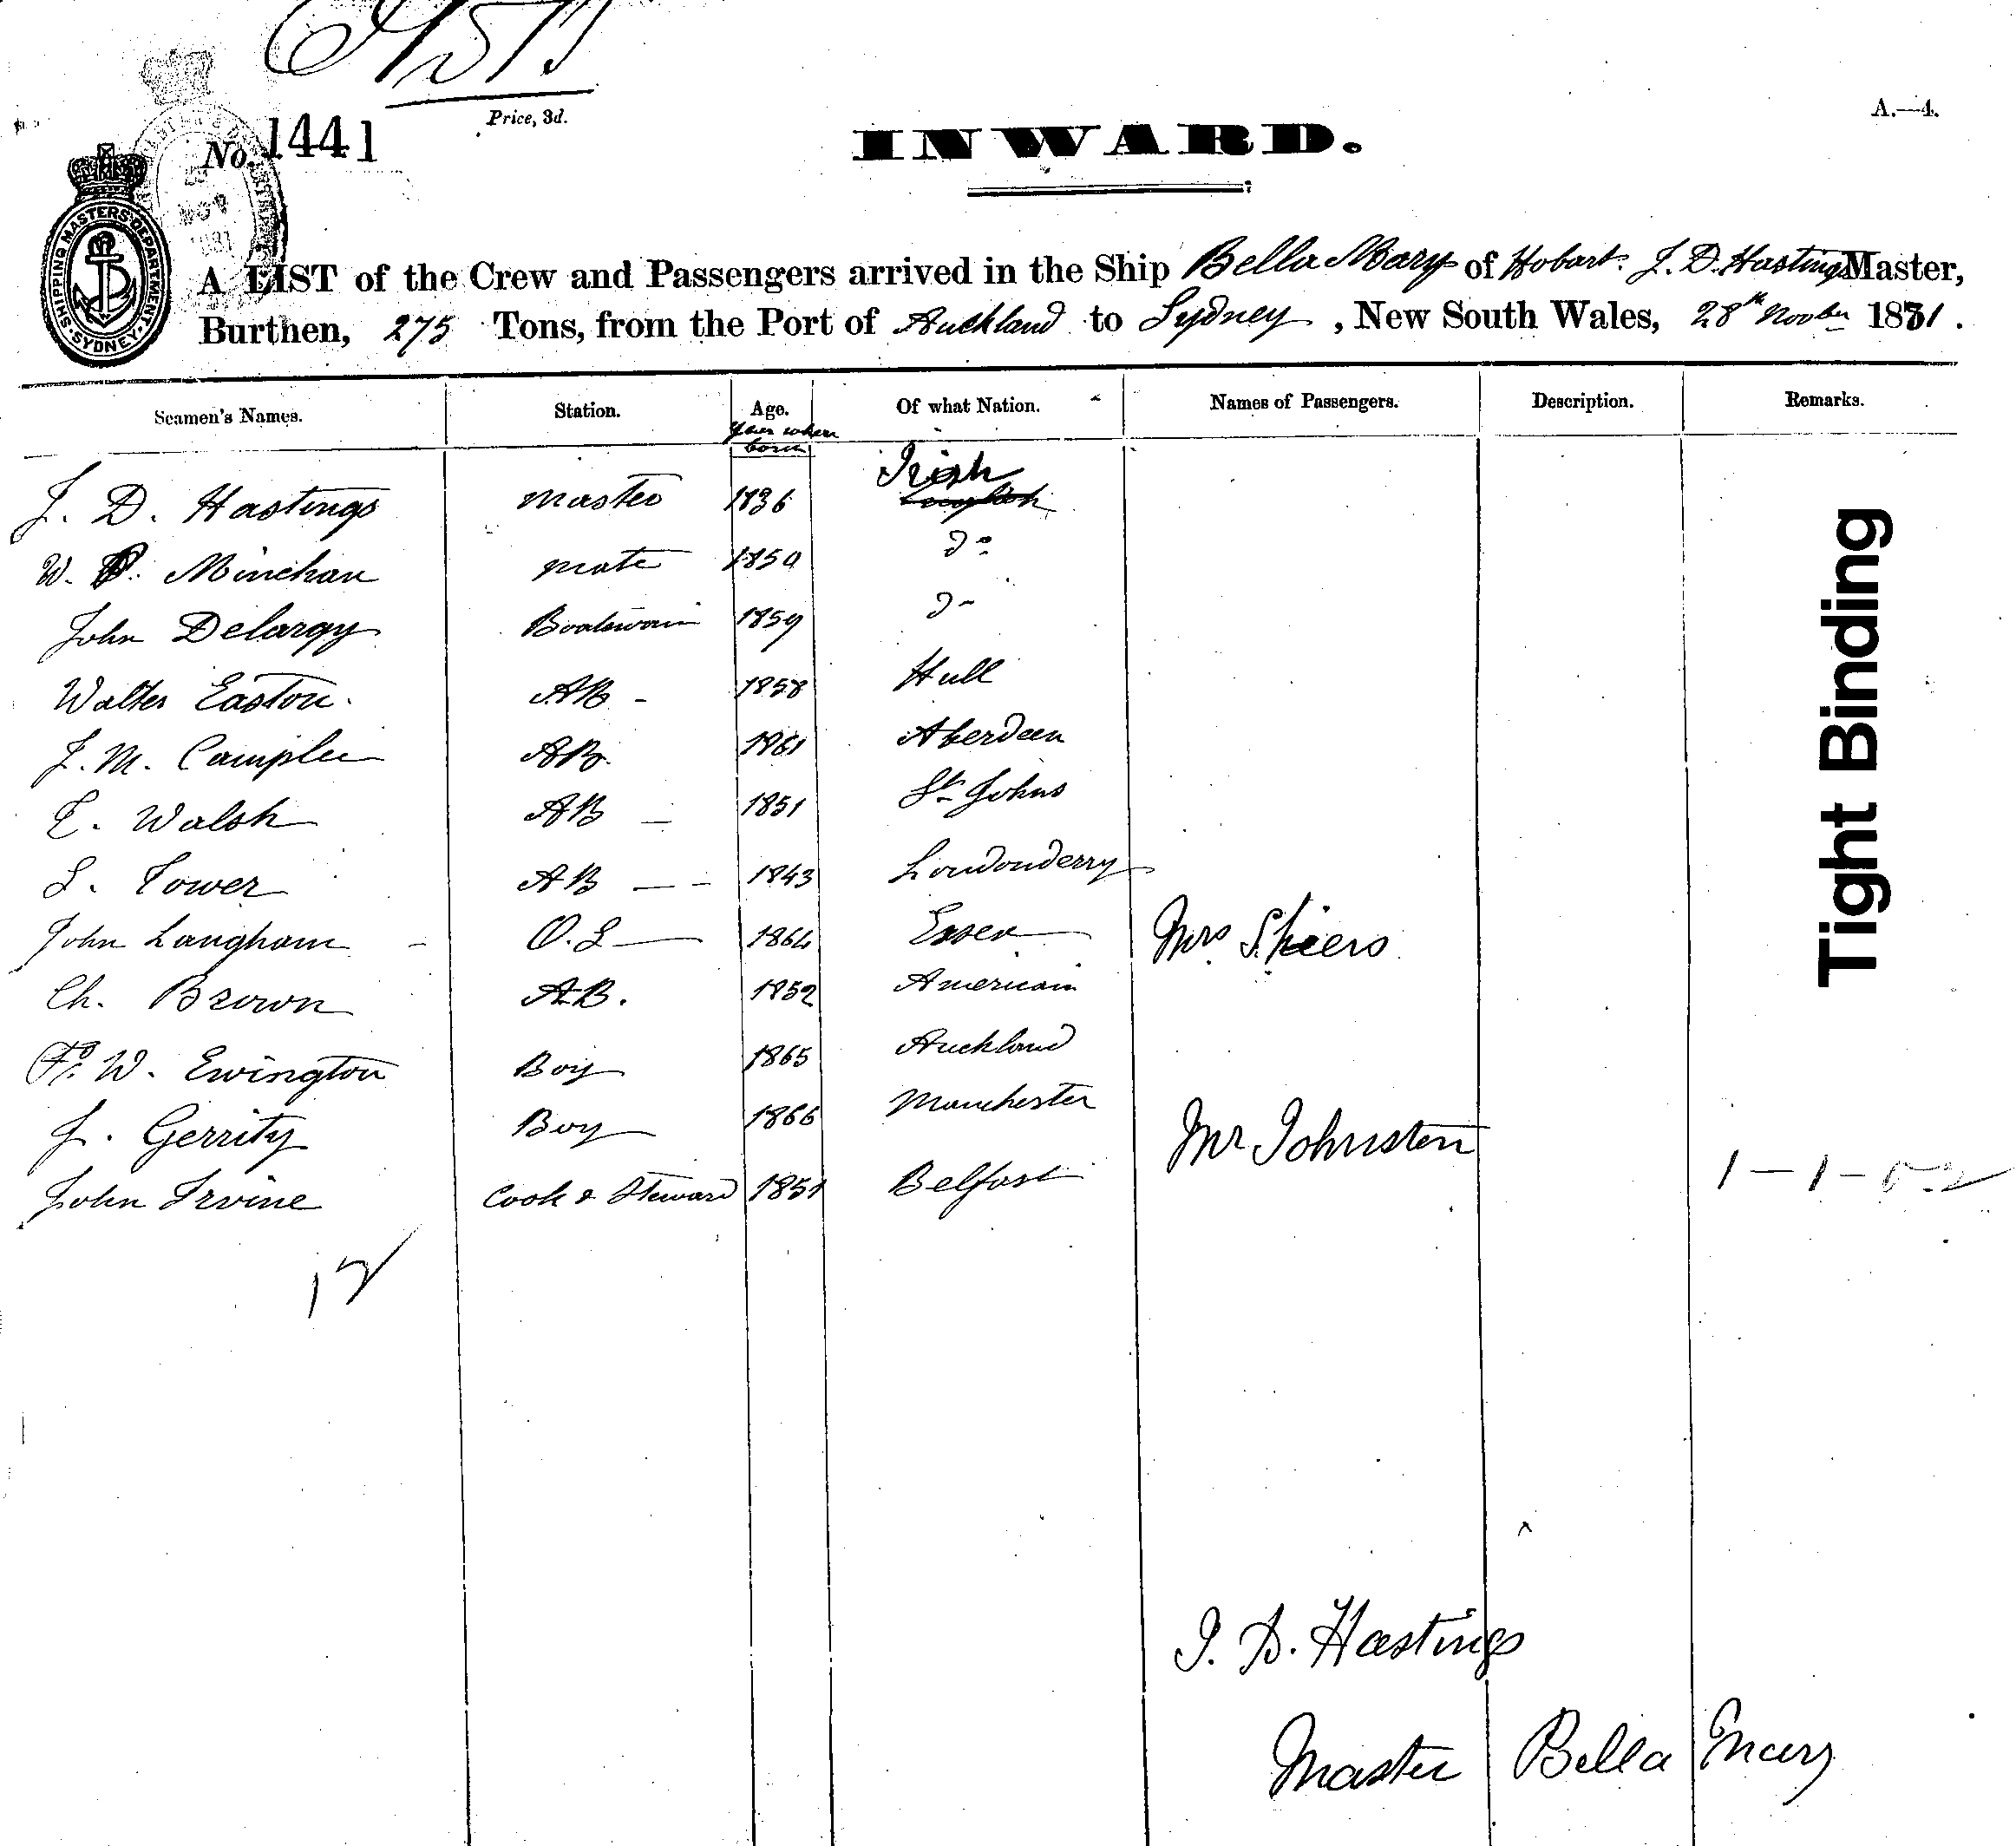 Price, 3d.
A.—4.
No. 1441
INWARD.
SHIPPING MASTERS DEPARTMENT
SYDNEY
NOV
1881
A LIST of the Crew and Passengers arrived in the Ship Bella Mary of Hobart. J. D. Hastings Master,
Burthen, 275 Tons, from the Port of Auckland to Sydney, New South Wales, 28th Novber 1881.
Seamen's Names. Station. Age. Of what Nation. Names of Passengers. Description. Remarks.
Year when
born
J. D. Hastings Master 1836 Irish English
W. P. Minchan Mate 1850 Do
John Delargy Boatswain 1859 D-
Walter Easton. AB - 1858 Hull
J. M. Camplee AB. 1861 Aberdeen
E. Walsh AB — 1851 St Johns
S. Tower AB — - 1843 Londonderry
John Langham - O.S — 1864 Essex Mrs Skiers
Ch. Brown A.B. 1852 American
W. Ewington Boy 1865 Auckland
J. Gerrity Boy 1866 Manchester Mr Johnston
John Irvine Cook & Steward 1851 Belfast 1 — 1 —
12
J. D. Hastings
Master Bella Mary
Tight Binding